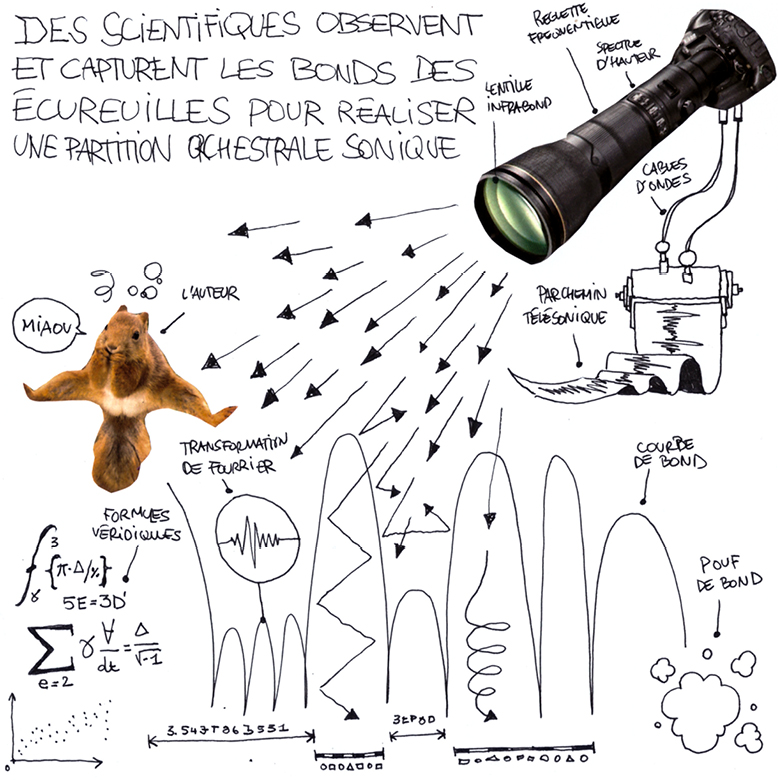 DES SCIENTIFIQUES OBSERVENT
ET CAPTURENT LES BONDS DES
ÉCUREUILLES POUR RÉALISER
UNE PARTITION ORCHESTRALE SONIQUE
REGLETTE
FREQUENTIELLE
SPECTRE
D'HAUTEUR
LENTILLE
INFRABOND
CABLES
D'ONDES
PARCHEMIN
TÉLÉSONIQUE
L'AUTEUR
MIAOU
TRANSFORMATION
DE FOURRIER
COURBE
DE BOND
FORMULES
VÉRIDIQUES
3
{π·Δ/x}
γ
5E=3D'
Σ γ ∀/dt = Δ/√-1
e=2
POUF
DE BOND
0